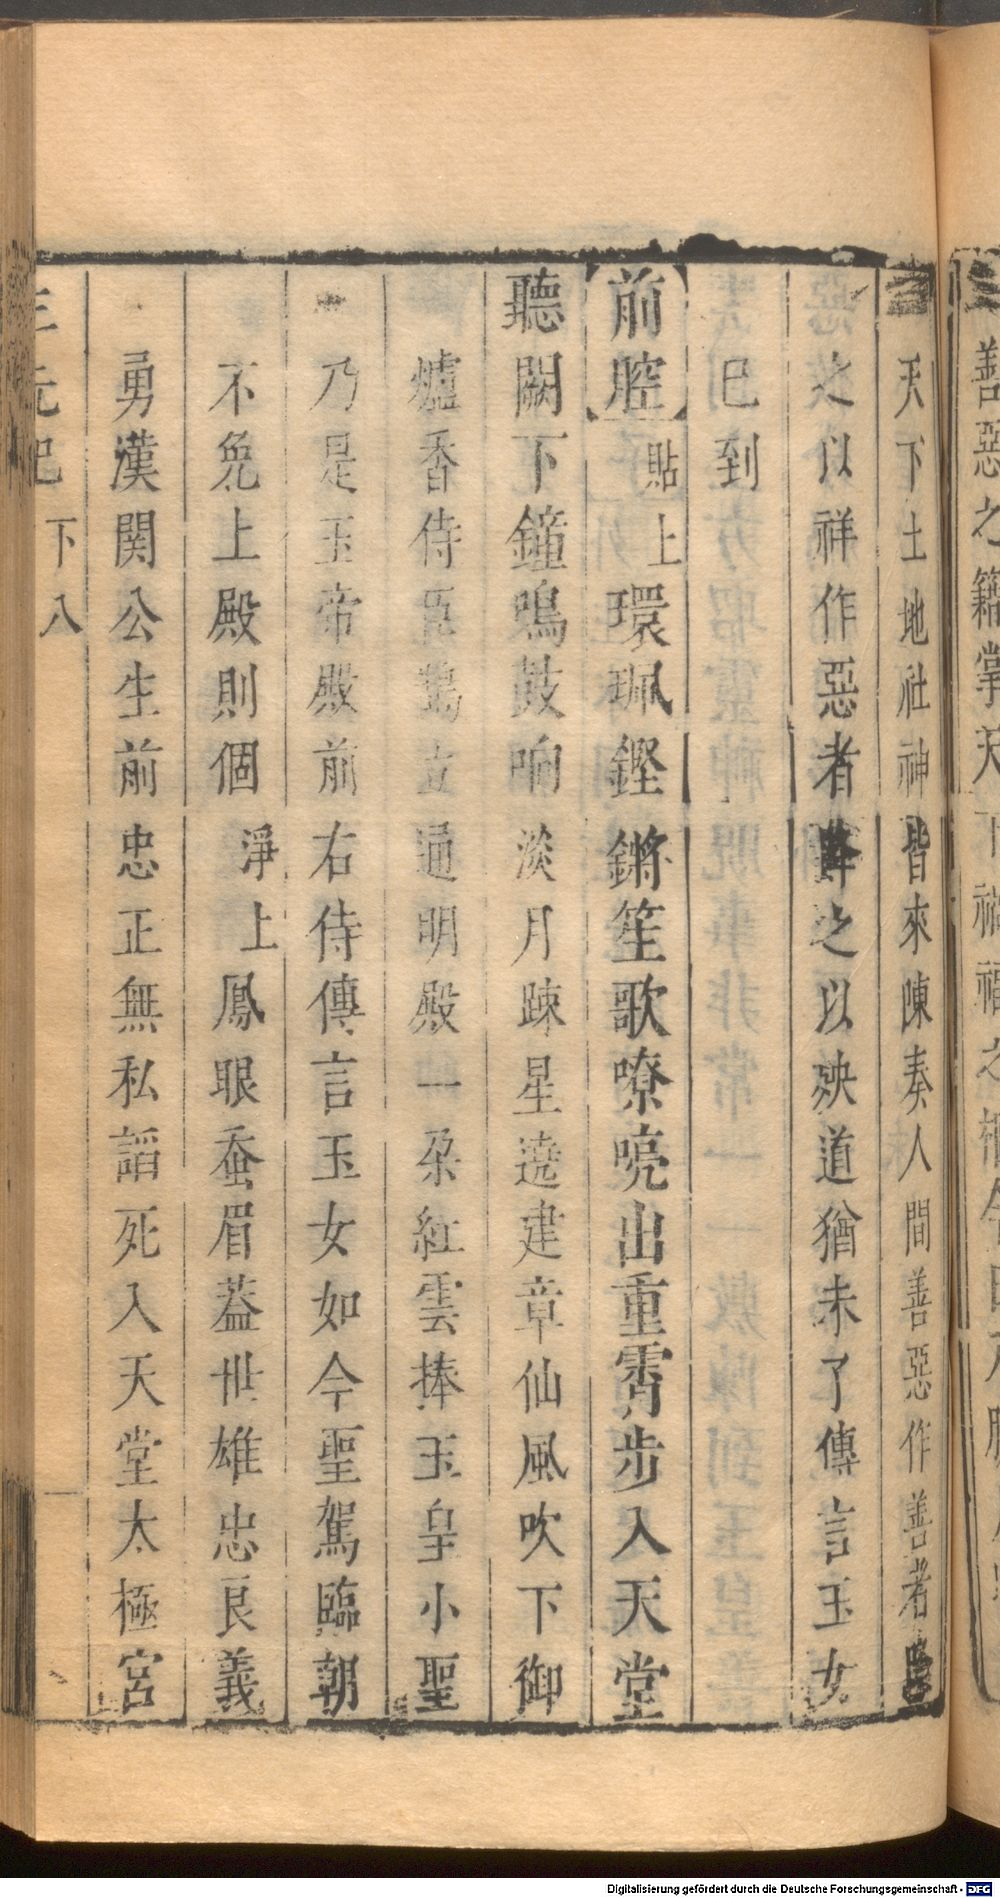 天下土地社神皆來陳奏人間善惡作善者
之以祥作惡者降之以殃道猶未了傳言玉女
已到
前腔 貼上 環珮鏗鏘笙歌嘹喨出重霄步入天堂
聽闕下鐘鳴鼓响淡月踈星遶建章仙風吹下御
爐香侍臣鵠立通明殿一朶紅雲捧玉皇小聖
乃是玉帝殿前右侍傳言玉女如今聖駕臨朝
不免上殿則個 淨上 鳳眼蚕眉蓋世雄忠良義
勇漢関公生前忠正無私謟死入天堂太極宮
三元記 下 八
善惡之籍掌天下禍福之
Digitalisierung gefördert durch die Deutsche Forschungsgemeinschaft - DFG